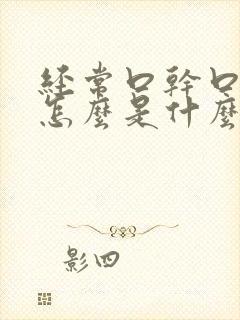 經常口幹口
怎麼是什麼
影四